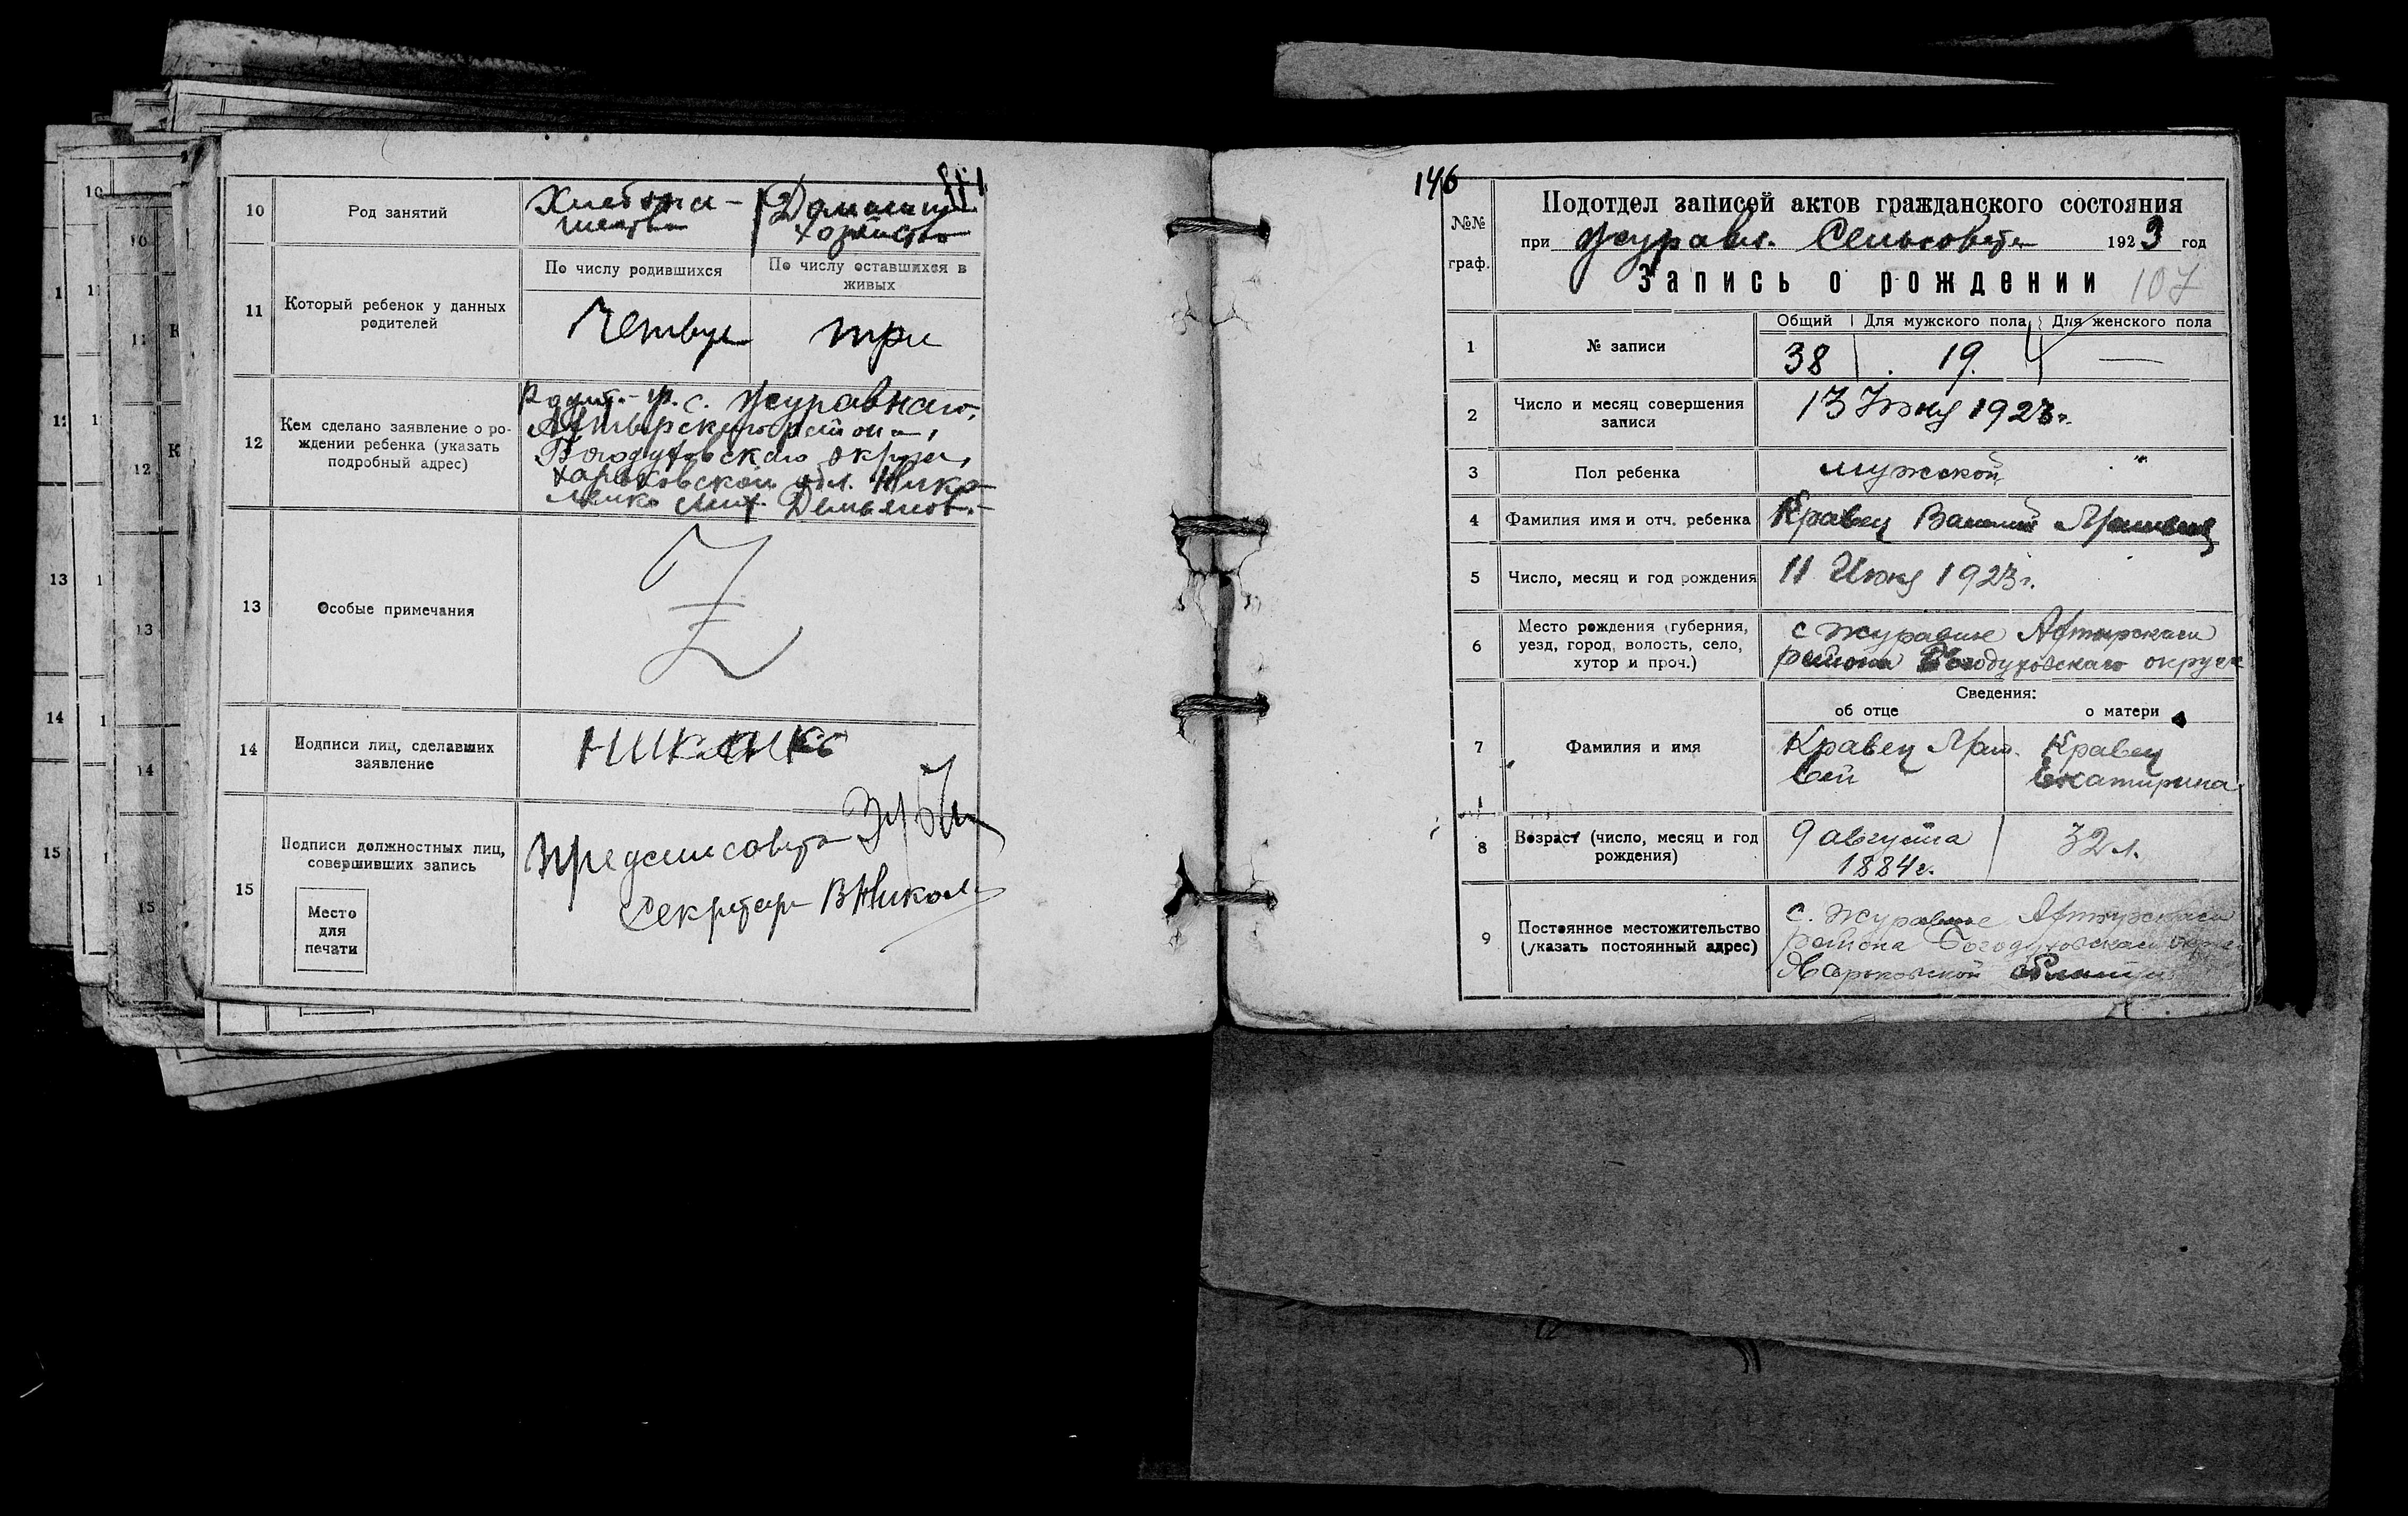 10
Род занятий
Хлебопа-
шество
Домашнее
хозяйство
11
Который ребенок у данных
родителей
По числу родившихся
По числу оставшихся в
живых
три
12
Кем сделано заявление о ро-
ждении ребенка (указать
подробный адрес)
с. Журавнаго,
Ахтырскаго района,
Богодуховскаго округа,
Харьковской обл. Нико-
ленко Мих. Демьянов.
13
Особые примечания
Z
14
Подписи лиц, сделавших
заявление
15
Подписи должностных лиц,
совершивших запись
Место
для
печати
Предсельсовета
Секретарь В Никол
146
№№
граф.
Подотдел записей актов гражданского состояния
при Журавл. Сельсовете 1923 год
Запись о рождении
107
1
№ записи
Общий
Для мужского пола
Для женского пола
38
19.
—
2
Число и месяц совершения
записи
13 Июня 1923г.
3
Пол ребенка
мужской
"
4
Фамилия имя и отч. ребенка
Кравец Василий
5
Число, месяц и год рождения
11 Июня 1923г.
6
Место рождения (губерния,
уезд, город, волость, село,
хутор и проч.)
с Журавное Ахтырскаго
района Богодуховскаго округа
Сведения:
об отце
о матери
7
Фамилия и имя
Кравец
Кравец
Екатирина
8
Возраст (число, месяц и год
рождения)
9 августа
1884г.
32 л.
9
Постоянное местожительство
(указать постоянный адрес)
с. Журавное Ахтырскаго
района Богодуховскаго округа
Харьковской области